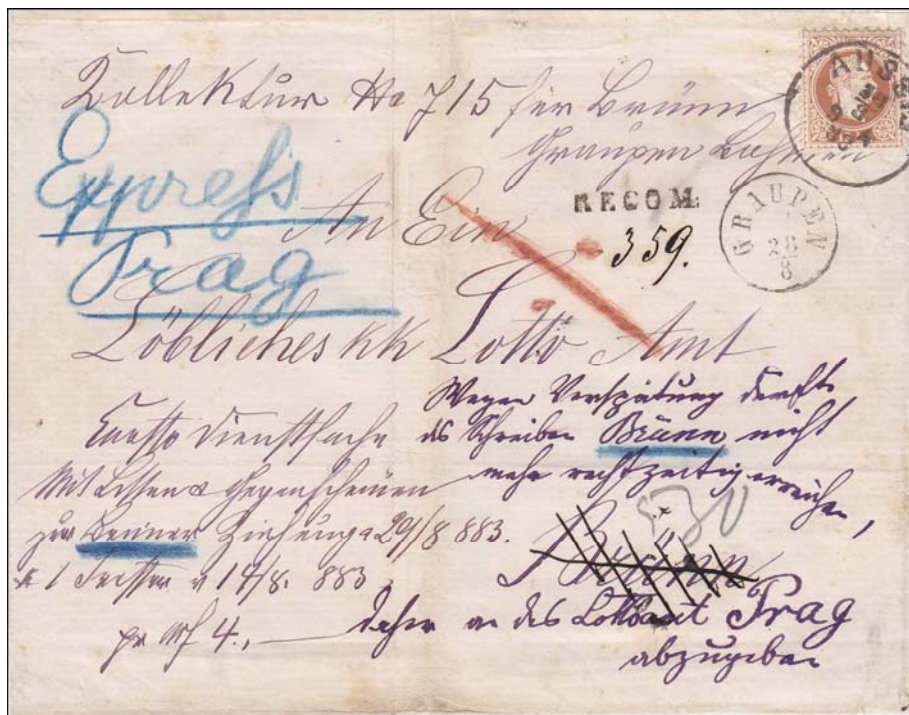 Kollektur No 715 für Brünn
Graupen Böhmen
Express
Prag
An Ein
RECOM.
359.
GRAUPEN
26
8
AUSSIG
Löbliches kk Lotto Amt
Lotto Dienstsache
Mit Listen & Gegenscheinen
zur Brünner Ziehung a 29/8 883.
1 v 14/8. 883
pr 4.,
Wegen Verspätung dürfte
das Schreiben Brünn nicht
mehr rechtzeitig erreichen,
Brünn
daher an das Lottoamt Prag
abzugeben